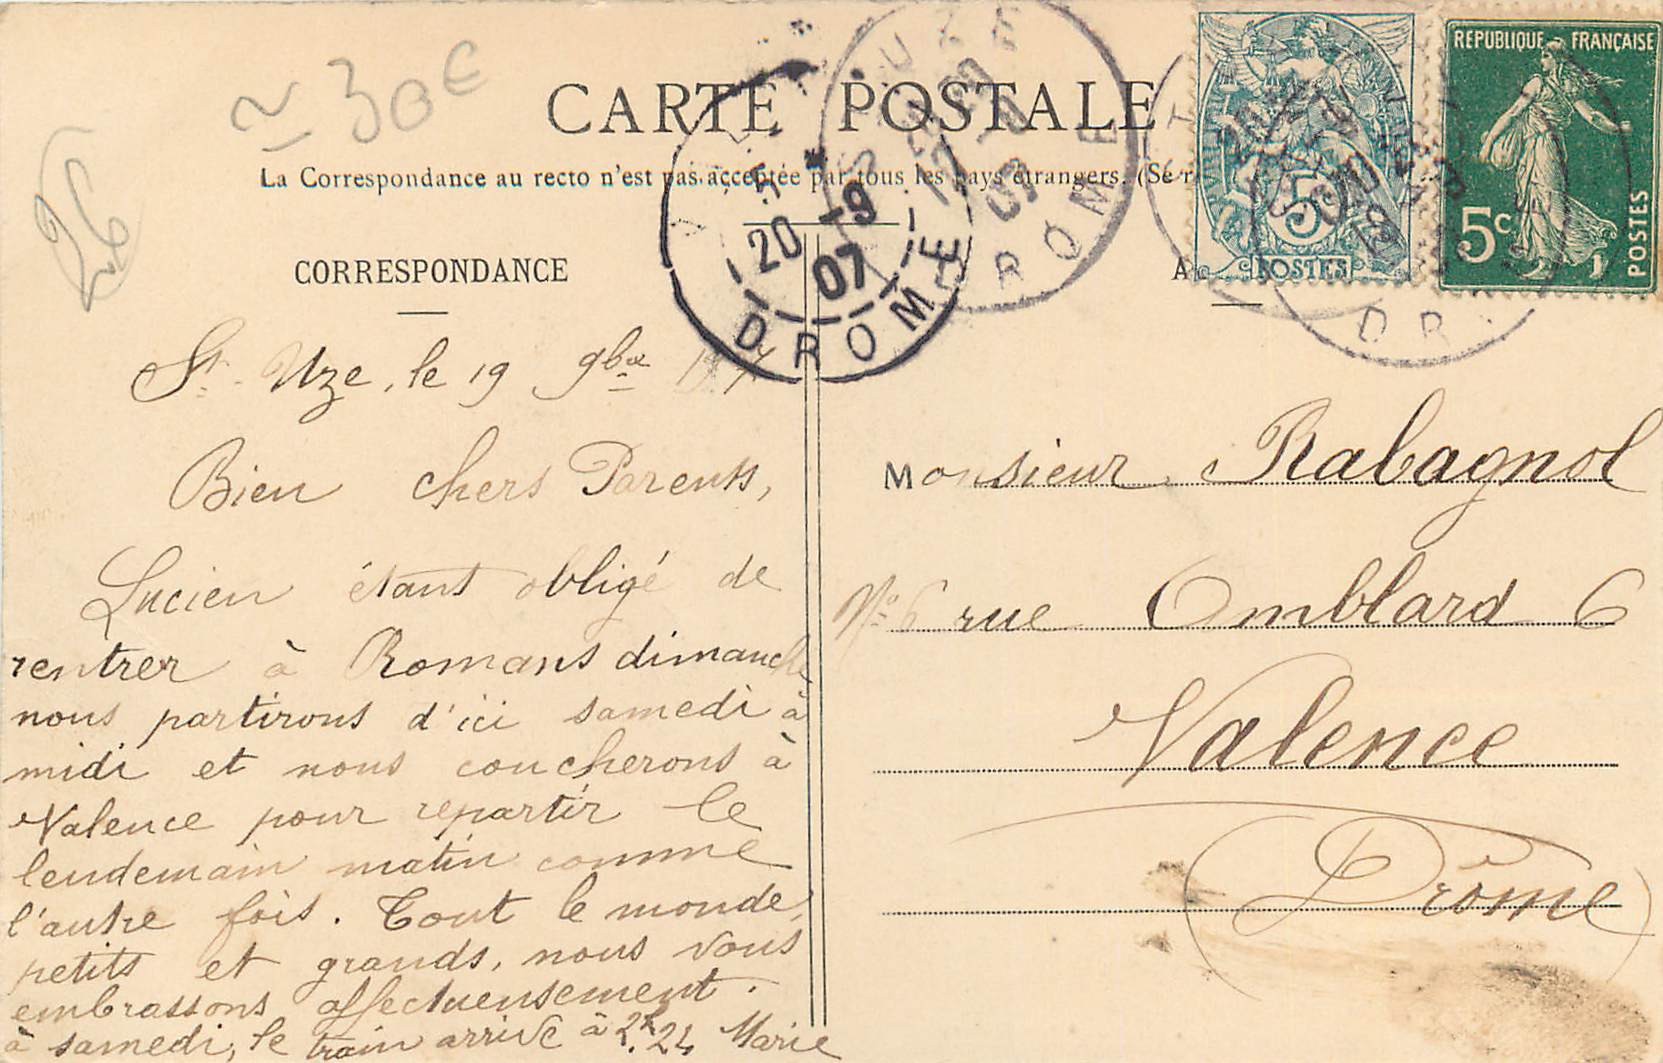 ≃ 30€
26
CARTE POSTALE
La Correspondance au recto n'est pas acceptée par tous les pays étrangers. (Se r
CORRESPONDANCE
A
REPUBLIQUE FRANÇAISE
5c
POSTES
5
POSTES
20 -9
07
DROME
DROME
DR
St. Uze, le 19 9bre 1907
Bien chers Parents,
Lucien étant obligé de
rentrer à Romans dimanche
nous partirons d'ici samedi à
midi et nous coucherons à
Valence pour repartir le
lendemain matin comme
l'autre fois. Tout le monde,
petits et grands, nous vous
embrassons affectueusement.
à samedi, le train arrive à 2h.24 Marie
Monsieur Rabagnol
No 6 rue Omblard 6
Valence
(Drôme)